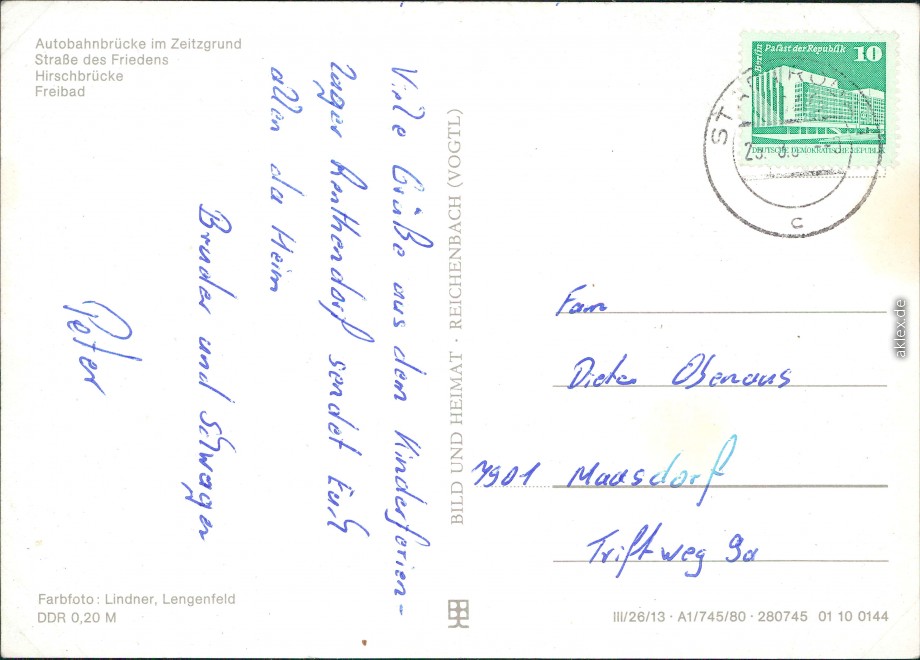 Autobahnbrücke im Zeitzgrund
Straße des Friedens
Hirschbrücke
Freibad
Viele Grüße aus dem Kinderferien-
lager Renthendorf sendet Euch
allen da Heim
Bruder und Schwager
Peter
BILD UND HEIMAT · REICHENBACH (VOGTL)
Berlin Palast der Republik 10
DEUTSCHE DEMOKRATISCHE REPUBLIK
STADTRODA
c
Fam
Dieter Obenaus
7901 Maasdorf
Triftweg 9a
Farbfoto: Lindner, Lengenfeld
DDR 0,20 M
III/26/13 · A1/745/80 · 280745 01 10 0144
aklex.de